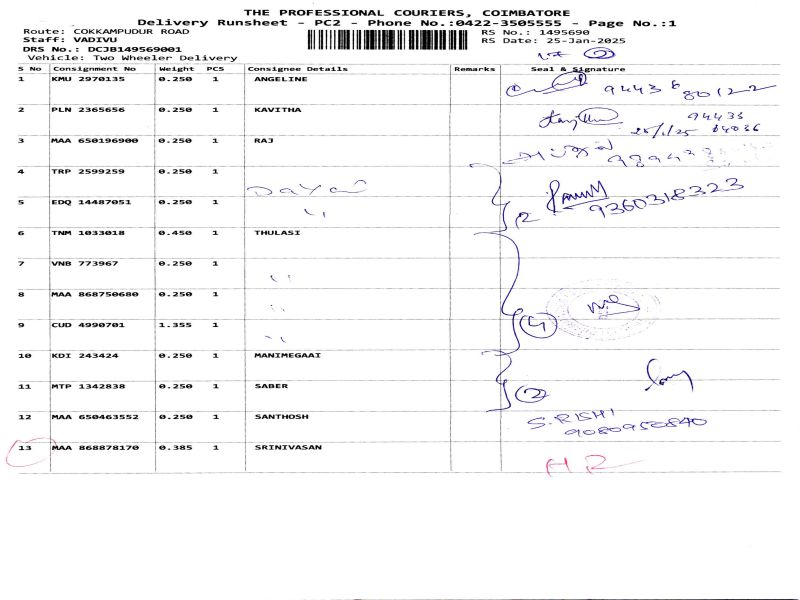 THE PROFESSIONAL COURIERS, COIMBATORE
Delivery Runsheet - PC2 - Phone No.:0422-3505555 - Page No.:1
Route: COKKAMPUDUR ROAD RS No.: 1495690
Staff: VADIVU RS Date: 25-Jan-2025
DRS No.: DCJB149569001
Vehicle: Two Wheeler Delivery
S No Consignment No Weight PCS Consignee Details Remarks Seal & Signature
1 KMU 2970135 0.250 1 ANGELINE
2 PLN 2365656 0.250 1 KAVITHA 94433
25/1/25 84036
3 MAA 650196900 0.250 1 RAJ
4 TRP 2599259 0.250 1
Dayal
5 EDQ 14487051 0.250 1 " 2 9360318323
6 TNM 1033018 0.450 1 THULASI
7 VNB 773967 0.250 1 "
8 MAA 868750680 0.250 1 "
9 CUD 4990701 1.355 1 " 4
10 KDI 243424 0.250 1 MANIMEGAAI
11 MTP 1342838 0.250 1 SABER 2
12 MAA 650463552 0.250 1 SANTHOSH S.RISHI
9080950840
13 MAA 868878170 0.385 1 SRINIVASAN